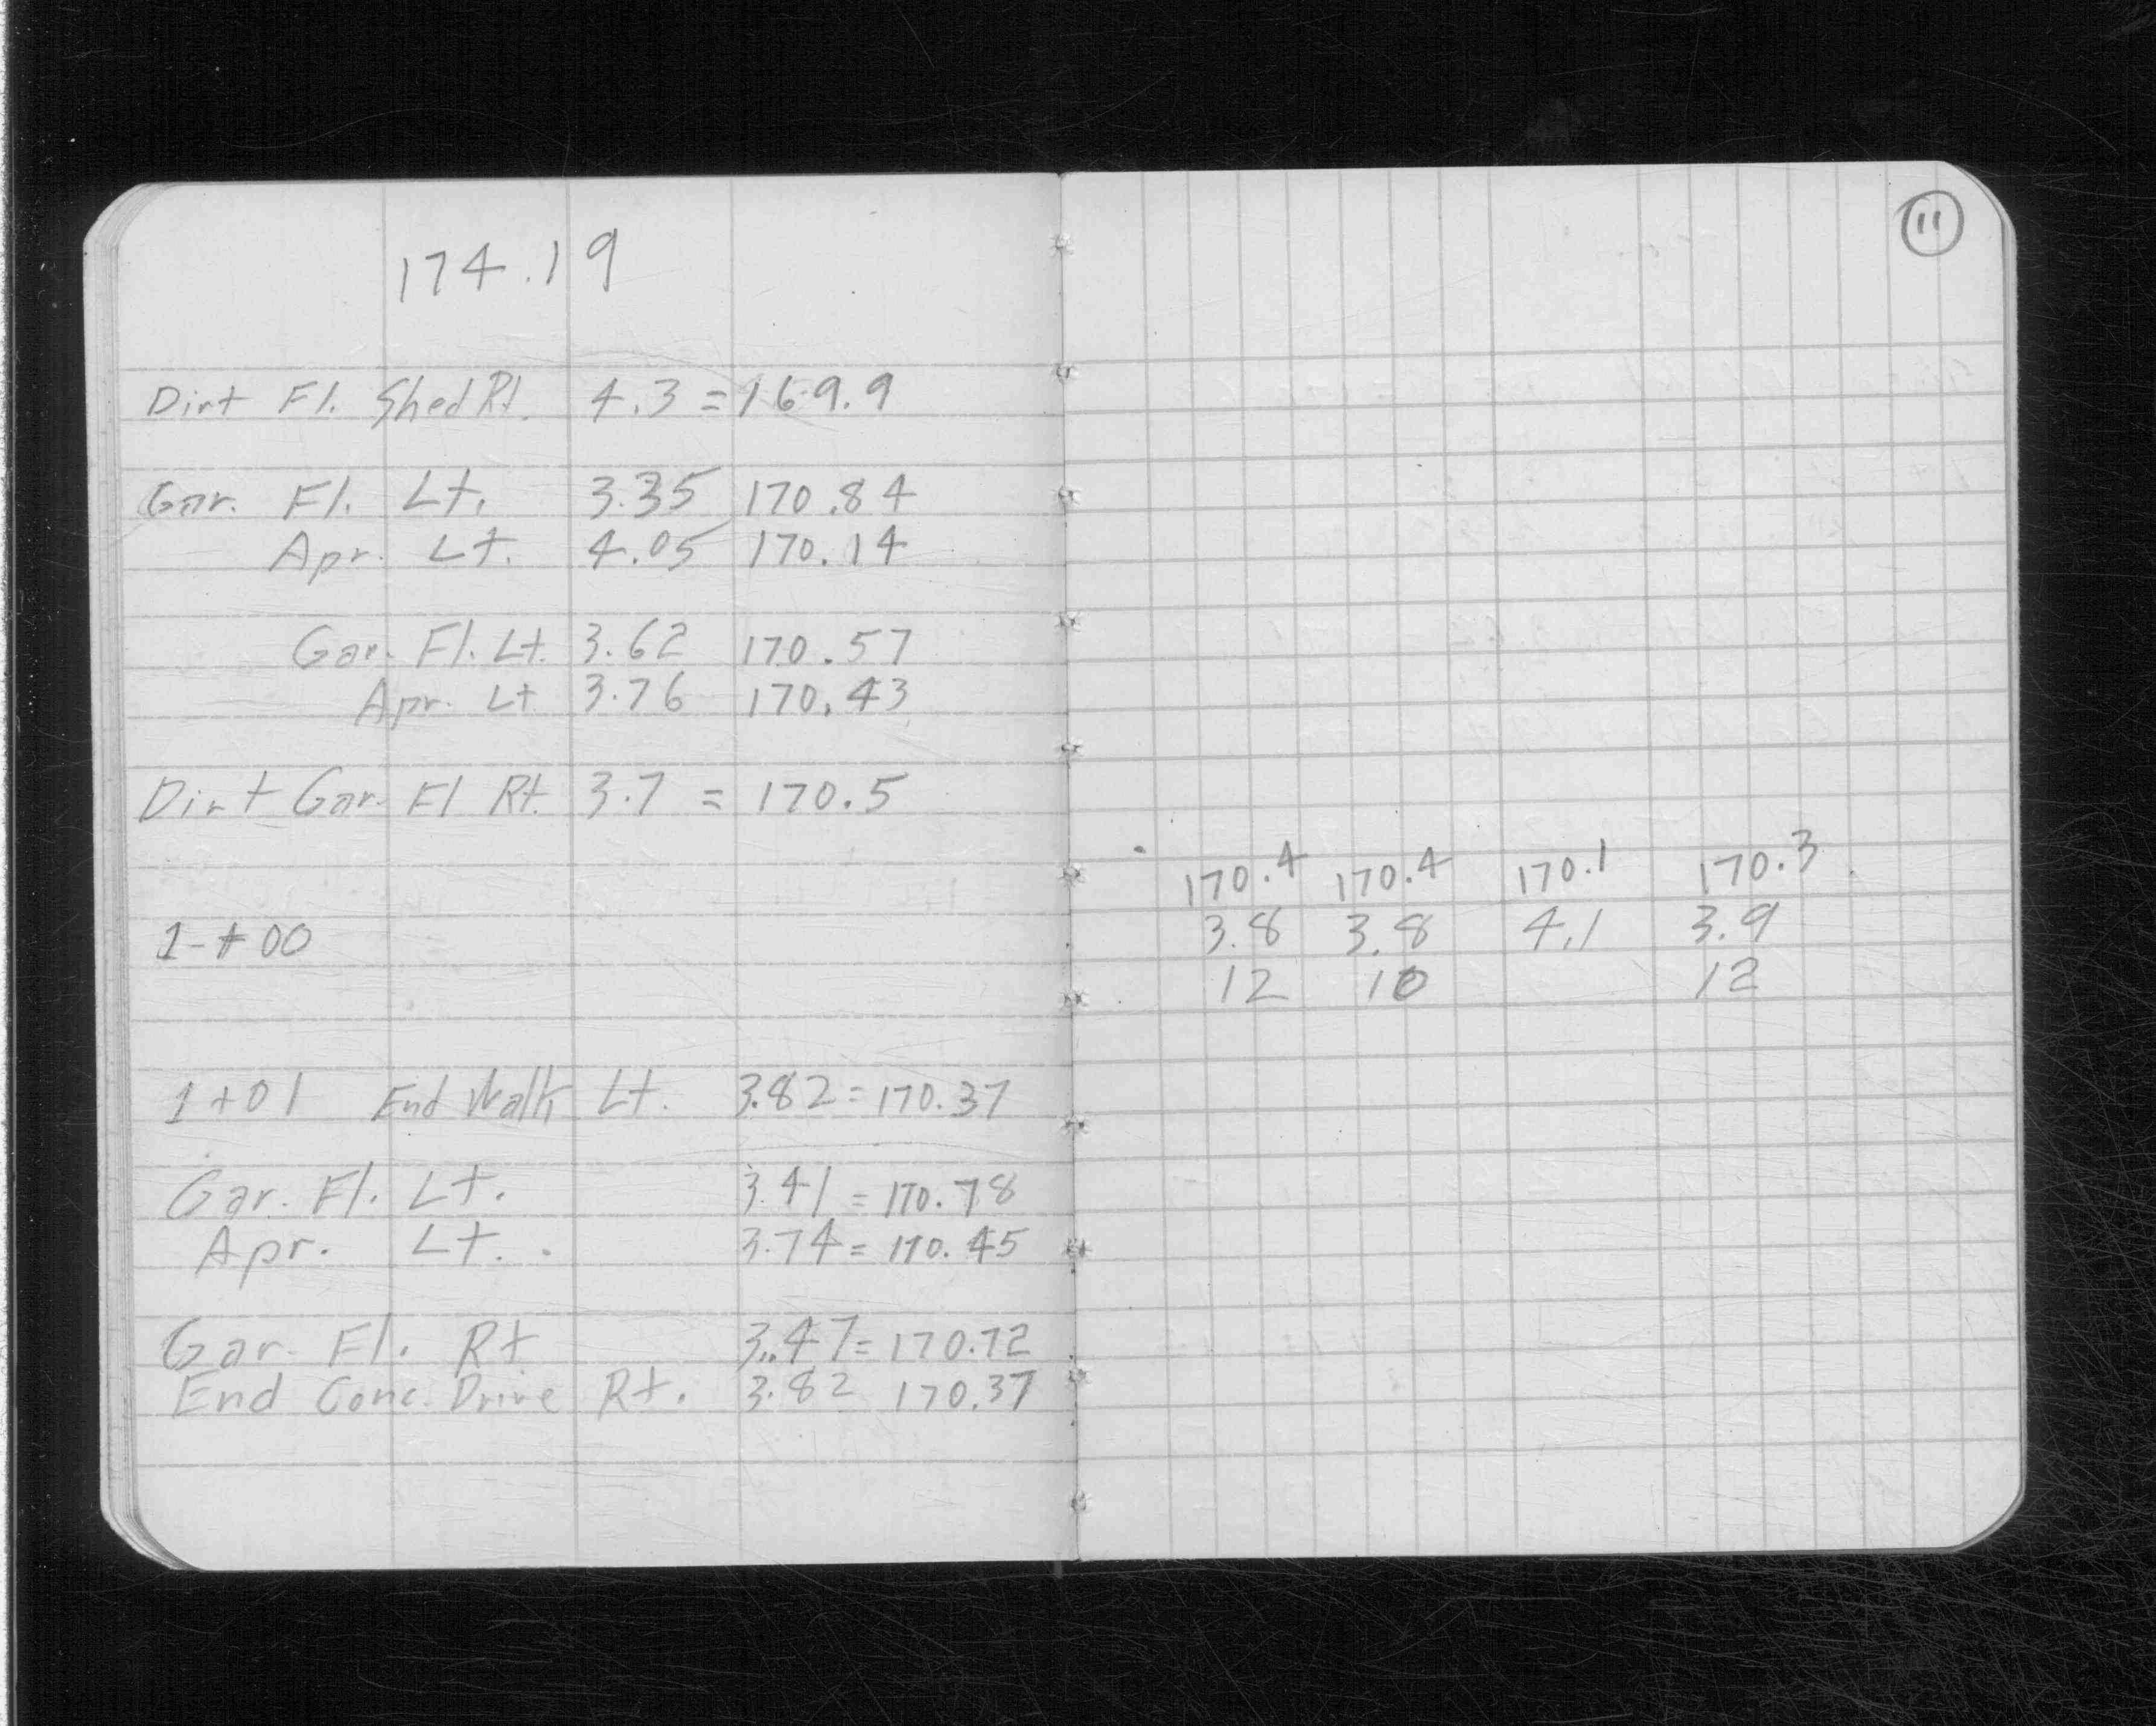 174.19
Dirt Fl. Shed Rt. 4.3 = 169.9
Gar. Fl. Lt. 3.35 170.84
Apr. Lt. 4.05 170.14
Gar. Fl. Lt. 3.62 170.57
Apr. Lt 3.76 170.43
Dirt Gar. Fl Rt. 3.7 = 170.5
1+00
1+01 End Walk Lt. 3.82 = 170.37
Gar. Fl. Lt. 3.41 = 170.78
Apr. Lt. 3.74 = 170.45
Gar. Fl. Rt 3.47 = 170.72
End Conc. Drive Rt. 3.82 170.37
11
170.4 170.4 170.1 170.3
3.8 3.8 4.1 3.9
12 10 12